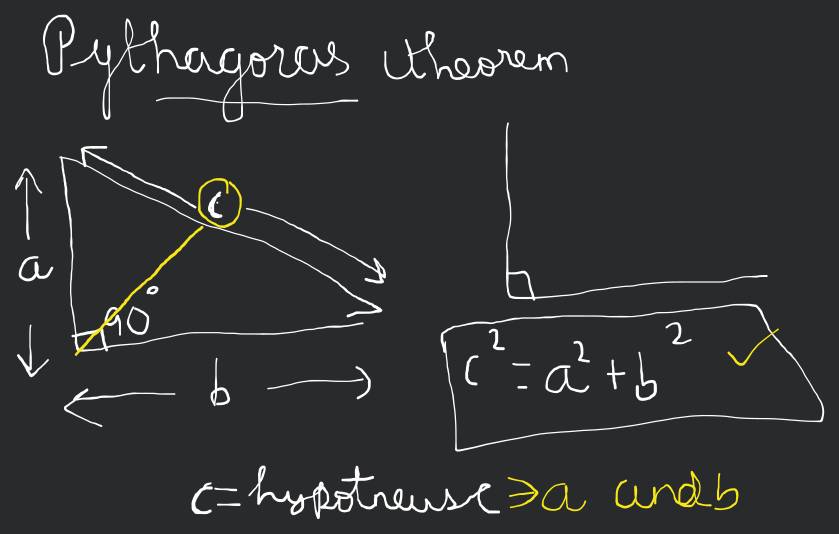 Pythagoras theorem
c
a
90°
b
c² = a² + b²
c = hypotneuse ⇒ a and b